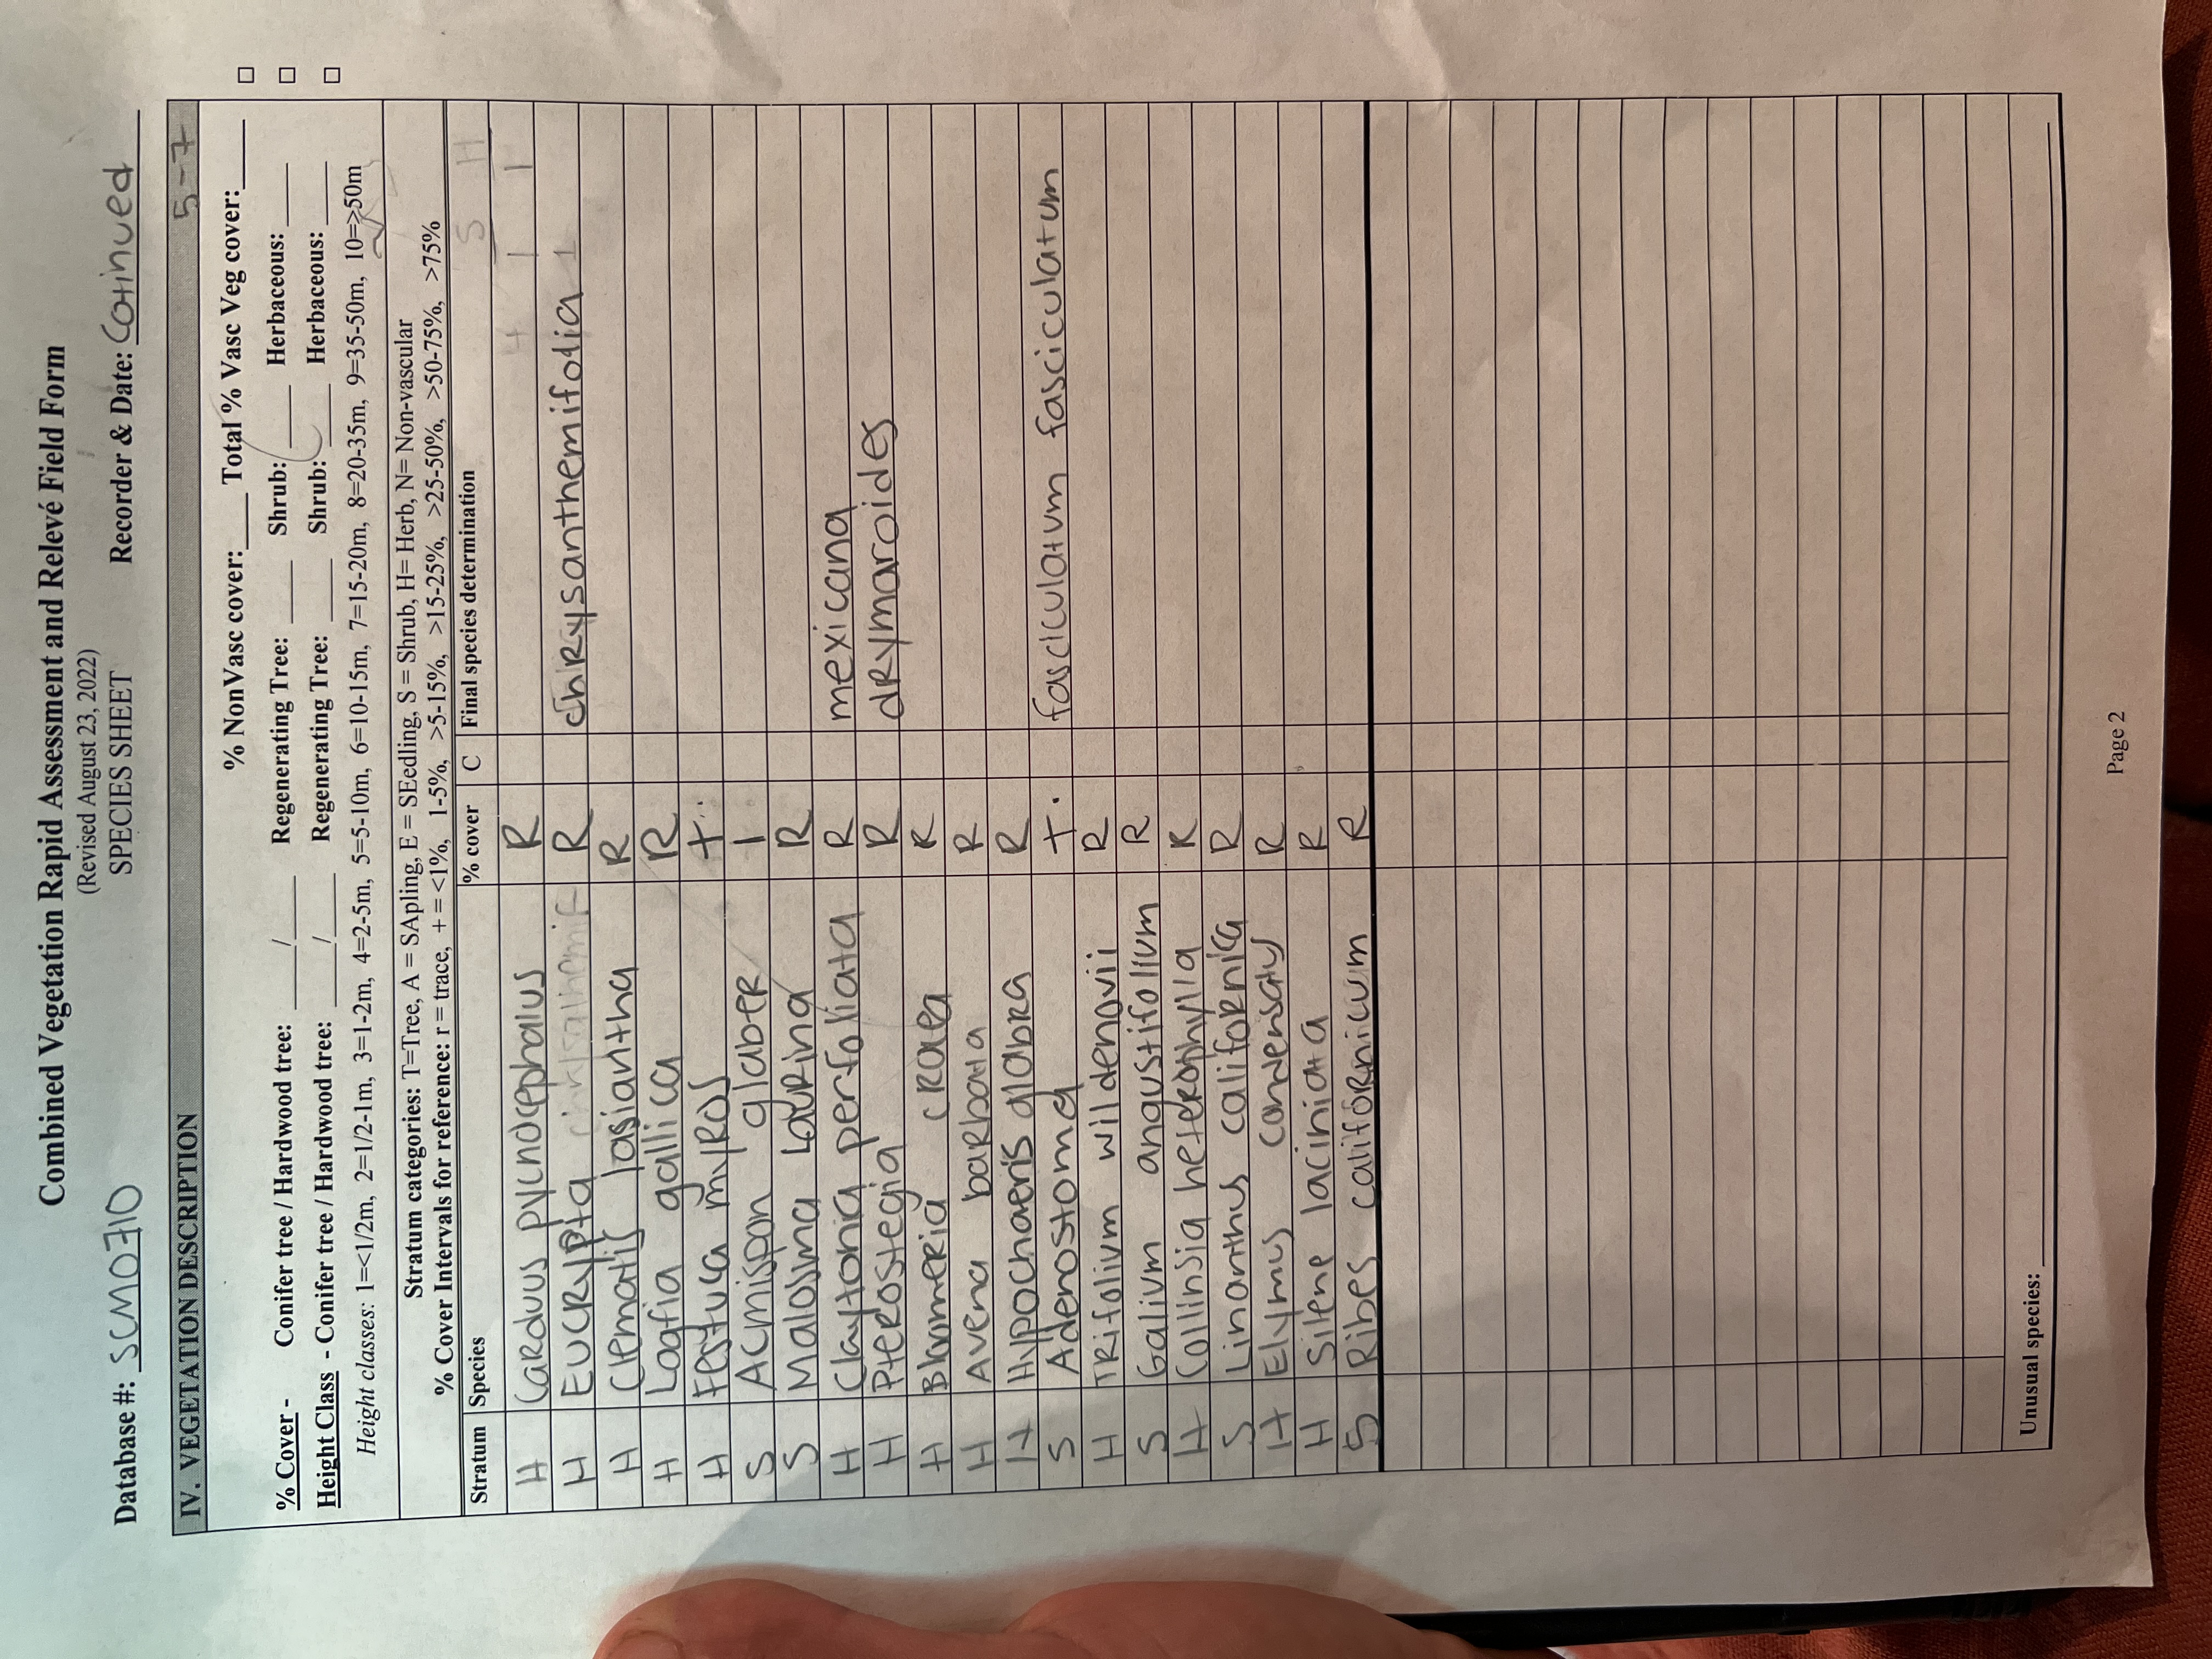 Combined Vegetation Rapid Assessment and Relevé Field Form
(Revised August 23, 2022)
SPECIES SHEET
Database #: SCM0710 Recorder & Date: Cotinued
IV. VEGETATION DESCRIPTION 5-7
% NonVasc cover:___ Total % Vasc Veg cover:____
% Cover - Conifer tree / Hardwood tree: ____/____ Regenerating Tree: ____ Shrub: ____ Herbaceous: ____ □
Height Class - Conifer tree / Hardwood tree: ____/____ Regenerating Tree: ____ Shrub: ____ Herbaceous: ____ □
Height classes: 1=<1/2m, 2=1/2-1m, 3=1-2m, 4=2-5m, 5=5-10m, 6=10-15m, 7=15-20m, 8=20-35m, 9=35-50m, 10=>50m
Stratum categories: T=Tree, A = SApling, E = SEedling, S = Shrub, H= Herb, N= Non-vascular
% Cover Intervals for reference: r = trace, + = <1%, 1-5%, >5-15%, >15-25%, >25-50%, >50-75%, >75%
Stratum Species % cover C Final species determination S H
H Carduus pycnocephalus R
H Eucrypta R chrysanthemifolia
H Clematis lasiantha R
H Logfia gallica R
H Festuca myros +.
S Acmispon glaber 1
S Malosma laurina R
H Claytonia perfoliata R mexicana
H Pterostegia R drymaroides
H Bloomeria crocea R
H Avena barbata R
H Hypochaeris glabra R
S Adenostoma +. fasciculatum fasciculatum
H Trifolium wildenovii R
S Galium angustifolium R
H Collinsia heterophylla R
S Linanthus californica R
H Elymus condensatus R
H Silene laciniata R
S Ribes californicum R
Unusual species:
Page 2